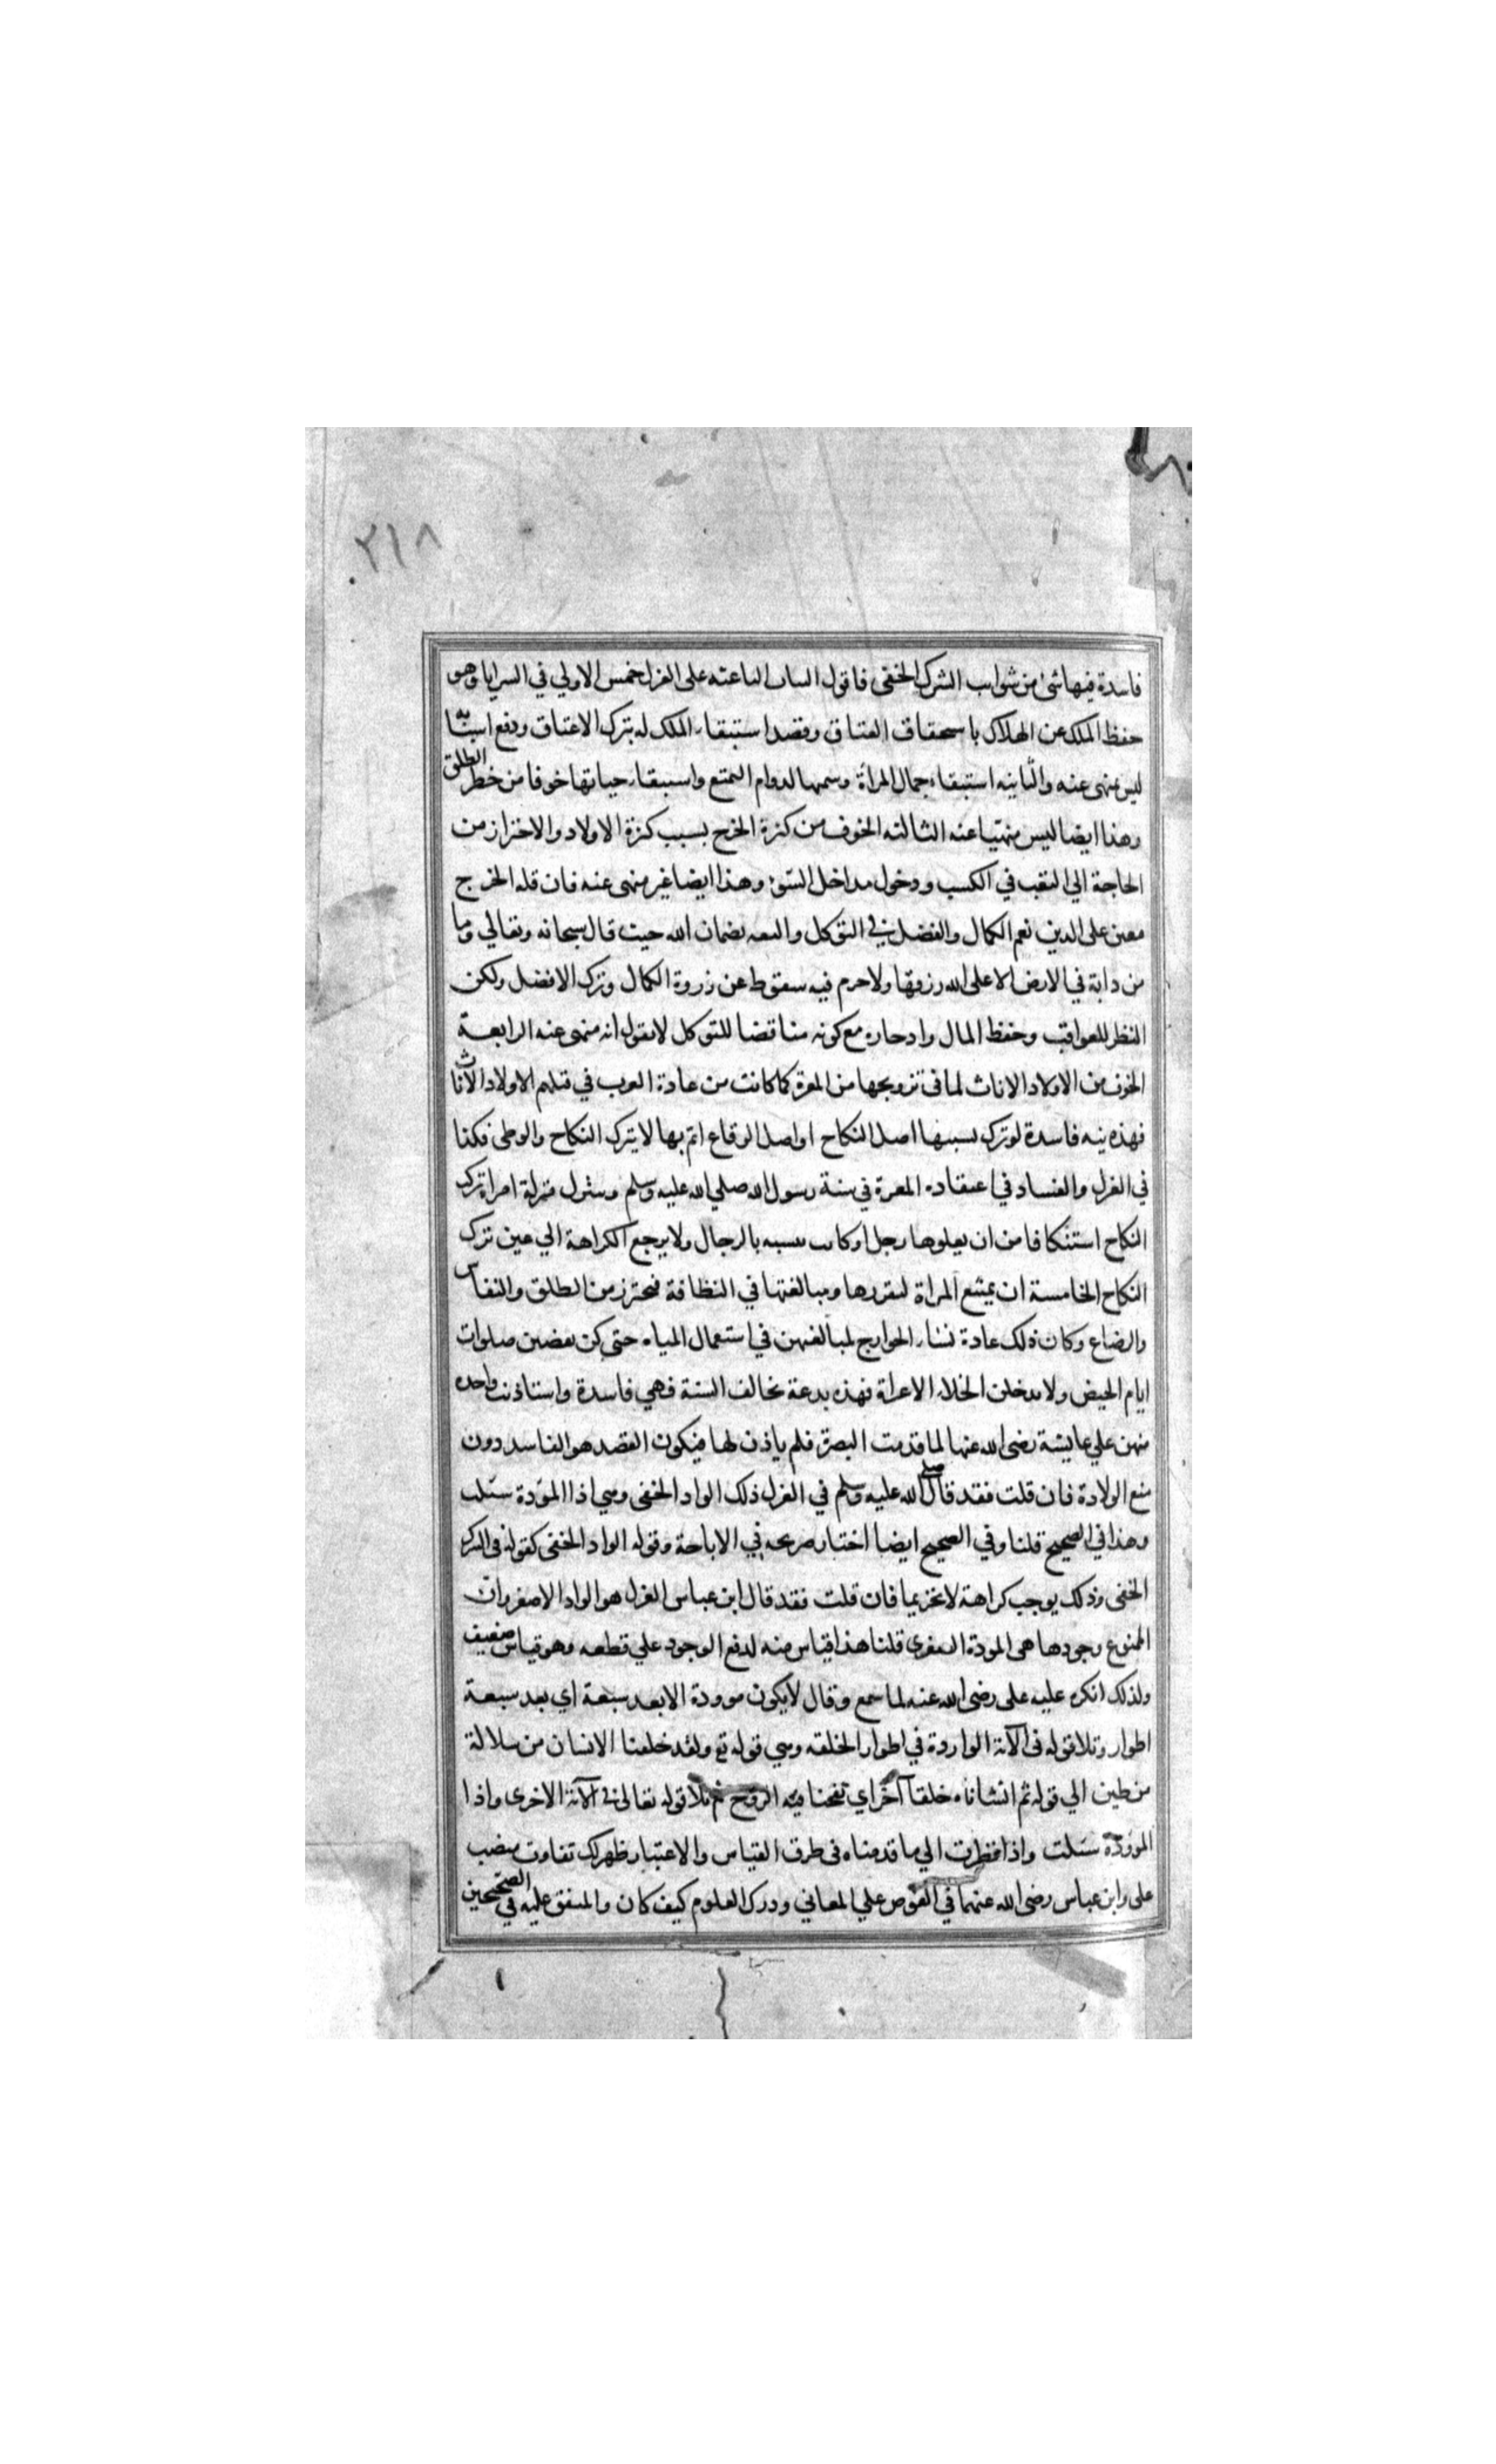 ٣١٨
فاسدة فيها شئ من شوايب الشرك الخفى فاقول النيات الباعثه على العزل خمس الاولي في السرايا وهو
حفظ الملك عن الهلاك باستحقاق العتاق وقصد استبقاء الملك له بترك الاعتاق ودفع اسبابه
ليس بمنهى عنه والثانيه استبقاء جمال المرأة وسمنها لدوام التمتع واستبقاء حياتها خوفا من خطر الطلق
وهذا ايضا ليس منهيا عنه الثالثه الخوف من كثرة الخرج بسبب كثرة الاولاد والاحتراز من
الحاجة الي التعب في الكسب ودخول مداخل السوء وهذا ايضا غير منهى عنه فان قله الخرج
معين على الدين نعم الكمال والفضل في التوكل والثقه بضمان الله حيث قال سبحانه وتعالي وما
من دابة في الارض الا على الله رزقها ولا جرم فيه سقوط عن ذروة الكمال وترك الافضل ولكن
النظر للعواقب وحفظ المال وادخاره مع كونه مناقضا للتوكل لا نقول انه منهى عنه الرابعة
الخوف من الاولاد الاناث لما في تزويجها من المعرة كما كانت من عادة العرب في قتلهم الاولاد الاناث
فهذه نيه فاسدة لو ترك بسببها اصل النكاح او اصل الوقاع اثم بها لا بترك النكاح والوطى فكذا
في العزل والفساد في اعتقاده المعرة في سنة رسول الله صلي الله عليه وسلم وينزل منزلة امراة تترك
النكاح استنكافا من ان يعلوها رجل وكانت تتشبه بالرجال ولا يرجع الكراهة الي عين ترك
النكاح الخامسة ان يمتنع المراة لتقززها ومبالغتها في النظافة فتحترز من الطلق والنفاس
والرضاع وكان ذلك عادة نساء الخوارج لمبالغتهن في استعمال المياه حتى كن يقضين صلوات
ايام الحيض ولا يدخلن الخلاء الا عراة فهذه بدعة تخالف السنة فهي فاسدة واستاذنت واحده
منهن علي عايشة رضى الله عنها لما قدمت البصرة فلم ياذن لها فيكون القصد هو الفاسد دون
منع الولادة فان قلت فقد قال صلى الله عليه وسلم في العزل ذلك الواد الخفى وهي اذا الموؤدة سئلت
وهذا في الصحيح قلنا وفي الصحيح ايضا اخبار صريحه في الاباحة وقوله الواد الخفى كقوله في الشرك
الخفى وذلك يوجب كراهة لا تحريما فان قلت فقد قال ابن عباس العزل هو الواد الاصغر وان
الممنوع وجودها هى الموودة الصغرى قلنا هذا قياس منه لدفع الوجود علي قطعه وهو قياس ضعيف
ولذلك انكره عليه على رضى الله عنه لما سمع وقال لا يكون موودة الا بعد سبعة اي بعد سبعة
اطوار وتلا قوله في الآية الواردة في اطوار الخلقه وهي قوله تع ولقد خلقنا الانسان من سلالة
من طين الي قوله ثم انشاناه خلقا آخر اي نفخنا فيه الروح ثم تلا قوله تعالى في الآية الاخرى واذا
الموؤدة سئلت واذا نظرت الي ما قدمناه فى طرق القياس والاعتبار ظهر لك تفاوت منصب
على وابن عباس رضى الله عنهما في الغوص علي المعاني ودرك العلوم كيف كان والمتفق عليه في الصحيحين